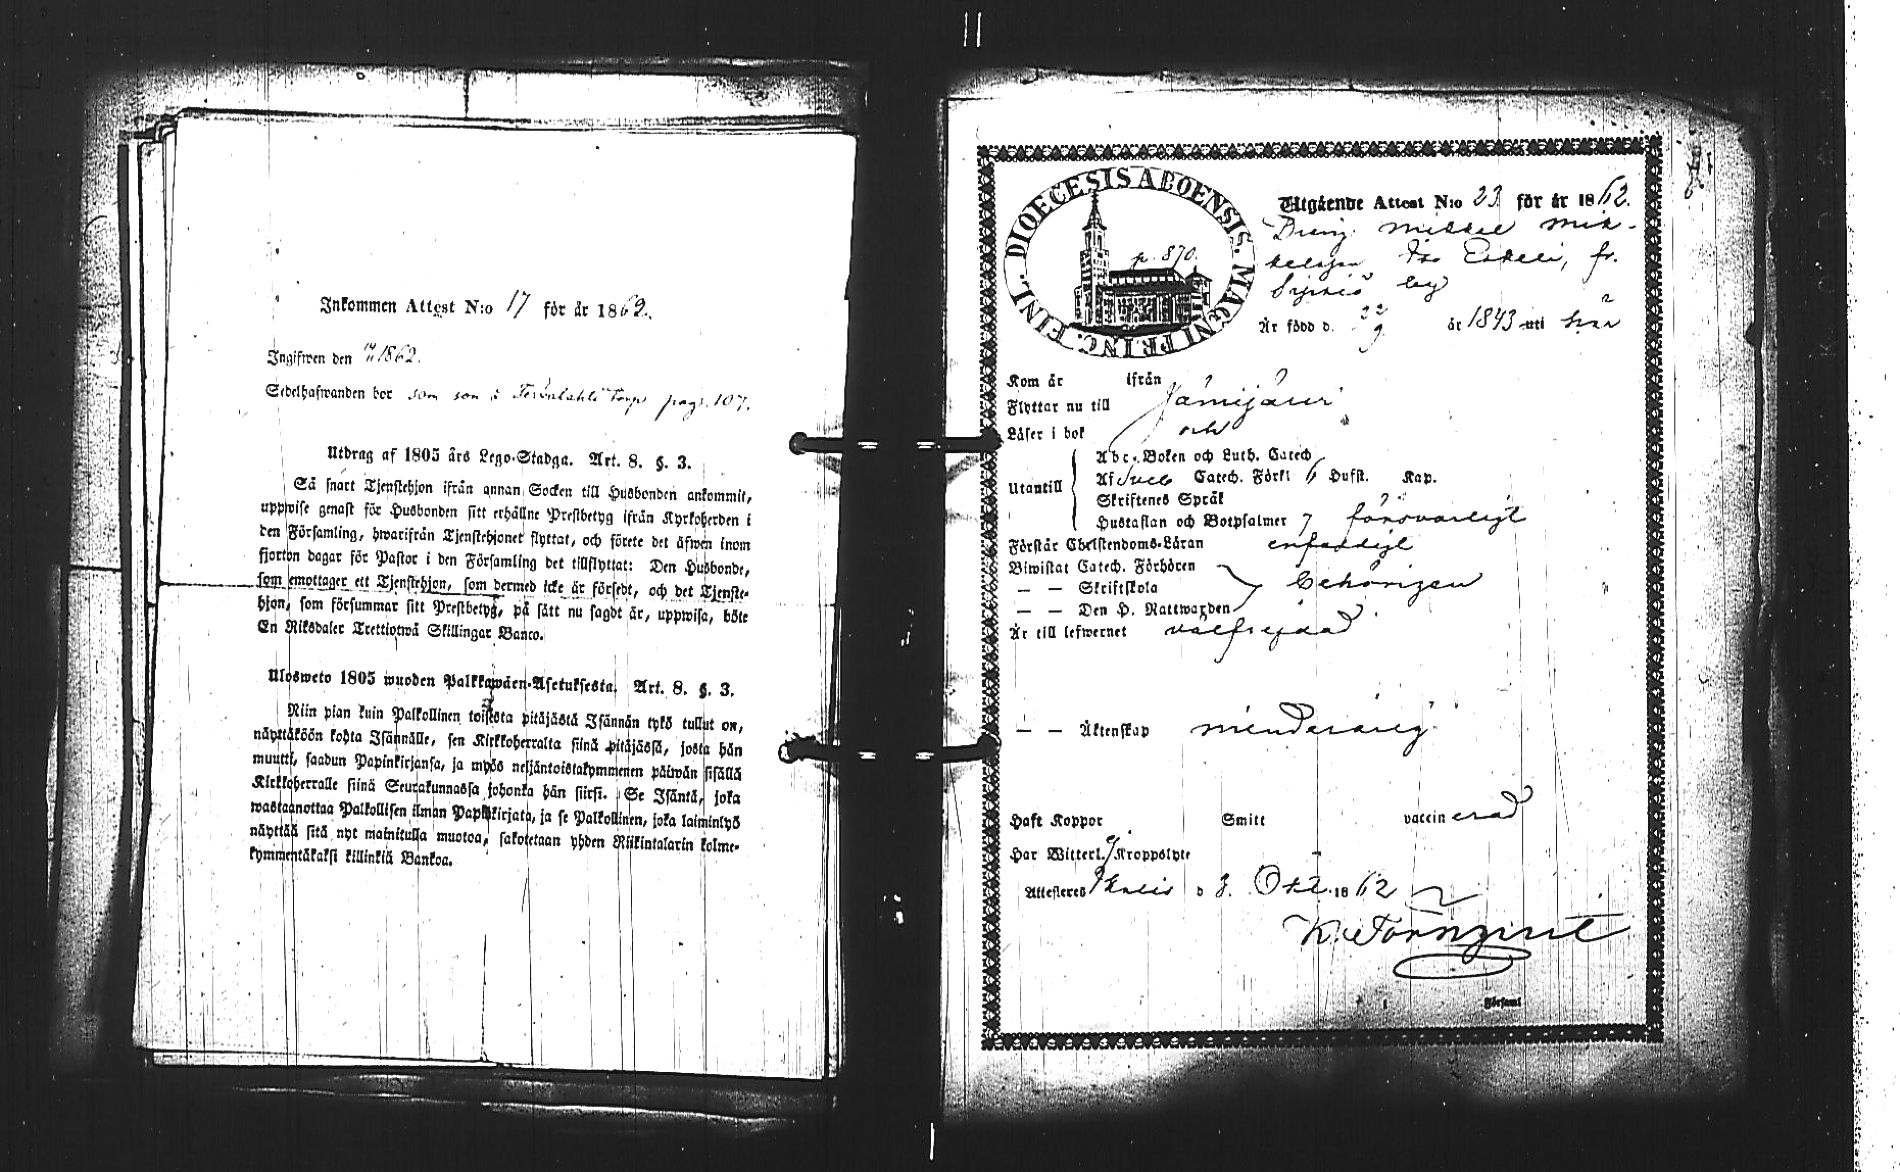 Inkommen Attest N:o 17 för år 1862.
Ingifwen den 1862.
Sedelhafwanden bor som son i torp pag. 107.
Utdrag af 1805 års Lego-Stadga. Art. 8. §. 3.
Så snart Tjenstehjon ifrån annan Socken till Husbonden ankommit,
uppwise genast för Husbonden sitt erhållne Prestbetyg ifrån Kyrkoherden i
den Församling, hwarifrån Tjenstehjonet flyttat, och förete det äfwen inom
fjorton dagar för Pastor i den Församling det tillflyttat: Den Husbonde,
som emottager ett Tjenstehjon, som dermed icke är försedt, och det Tjenste-
hjon, som försummar sitt Prestbetyg, på sätt nu sagdt är, uppwisa, böte
En Riksdaler Trettiotwå Skillingar Banco.
Ulosweto 1805 wuoden Palkkawäen-Asetuksesta. Art. 8. §. 3.
Niin pian kuin Palkollinen toisesta pitäjästä Isännän tykö tullut on,
näyttäköön kohta Isännälle, sen Kirkkoherralta siinä pitäjässä, josta hän
muutti, saadun Papinkirjansa, ja myös neljäntoistakymmenen päiwän sisällä
Kirkkoherralle siinä Seurakunnassa johonka hän siirsi. Se Isäntä, joka
wastaanottaa Palkollisen ilman Papinkirjata, ja se Palkollinen, joka laiminlyö
näyttää sitä nyt mainitulla muotoa, sakotetaan yhden Riikintalarin kolme-
kymmentäkaksi killinkiä Bankoa.
DIOECESIS ABOENSIS. MAGNI PRINC. FINL.
p. 870.
Utgående Attest N:o 23 för år 1862.
Dreng Mikkel Mik-
kelsson Eskeli, fr.
by
Är född d. 22/9 år 1843 uti
Kom år ifrån
Flyttar nu till Jämijärvi
Läser i bok och
Utantill
Abc-Boken och Luth. Catech
Af Sveb Catech. Förkl Hufst. Kap.
Skriftenes Språk
Hustaflan och Botpsalmer försvarligt
Förstår Christendoms-Läran enfaldigt
Biwistat Catech. Förhören
— — Skriftskola behörigen
— — Den H. Nattwarden
Är till lefwernet välfrejdad
— — Äktenskap minderårig
Haft Koppor Smitt vaccinerad
Har Witterl. Kroppslyte
Attesteres Ikalis d 3. Okt. 1862
K. Törnqvist
Församl